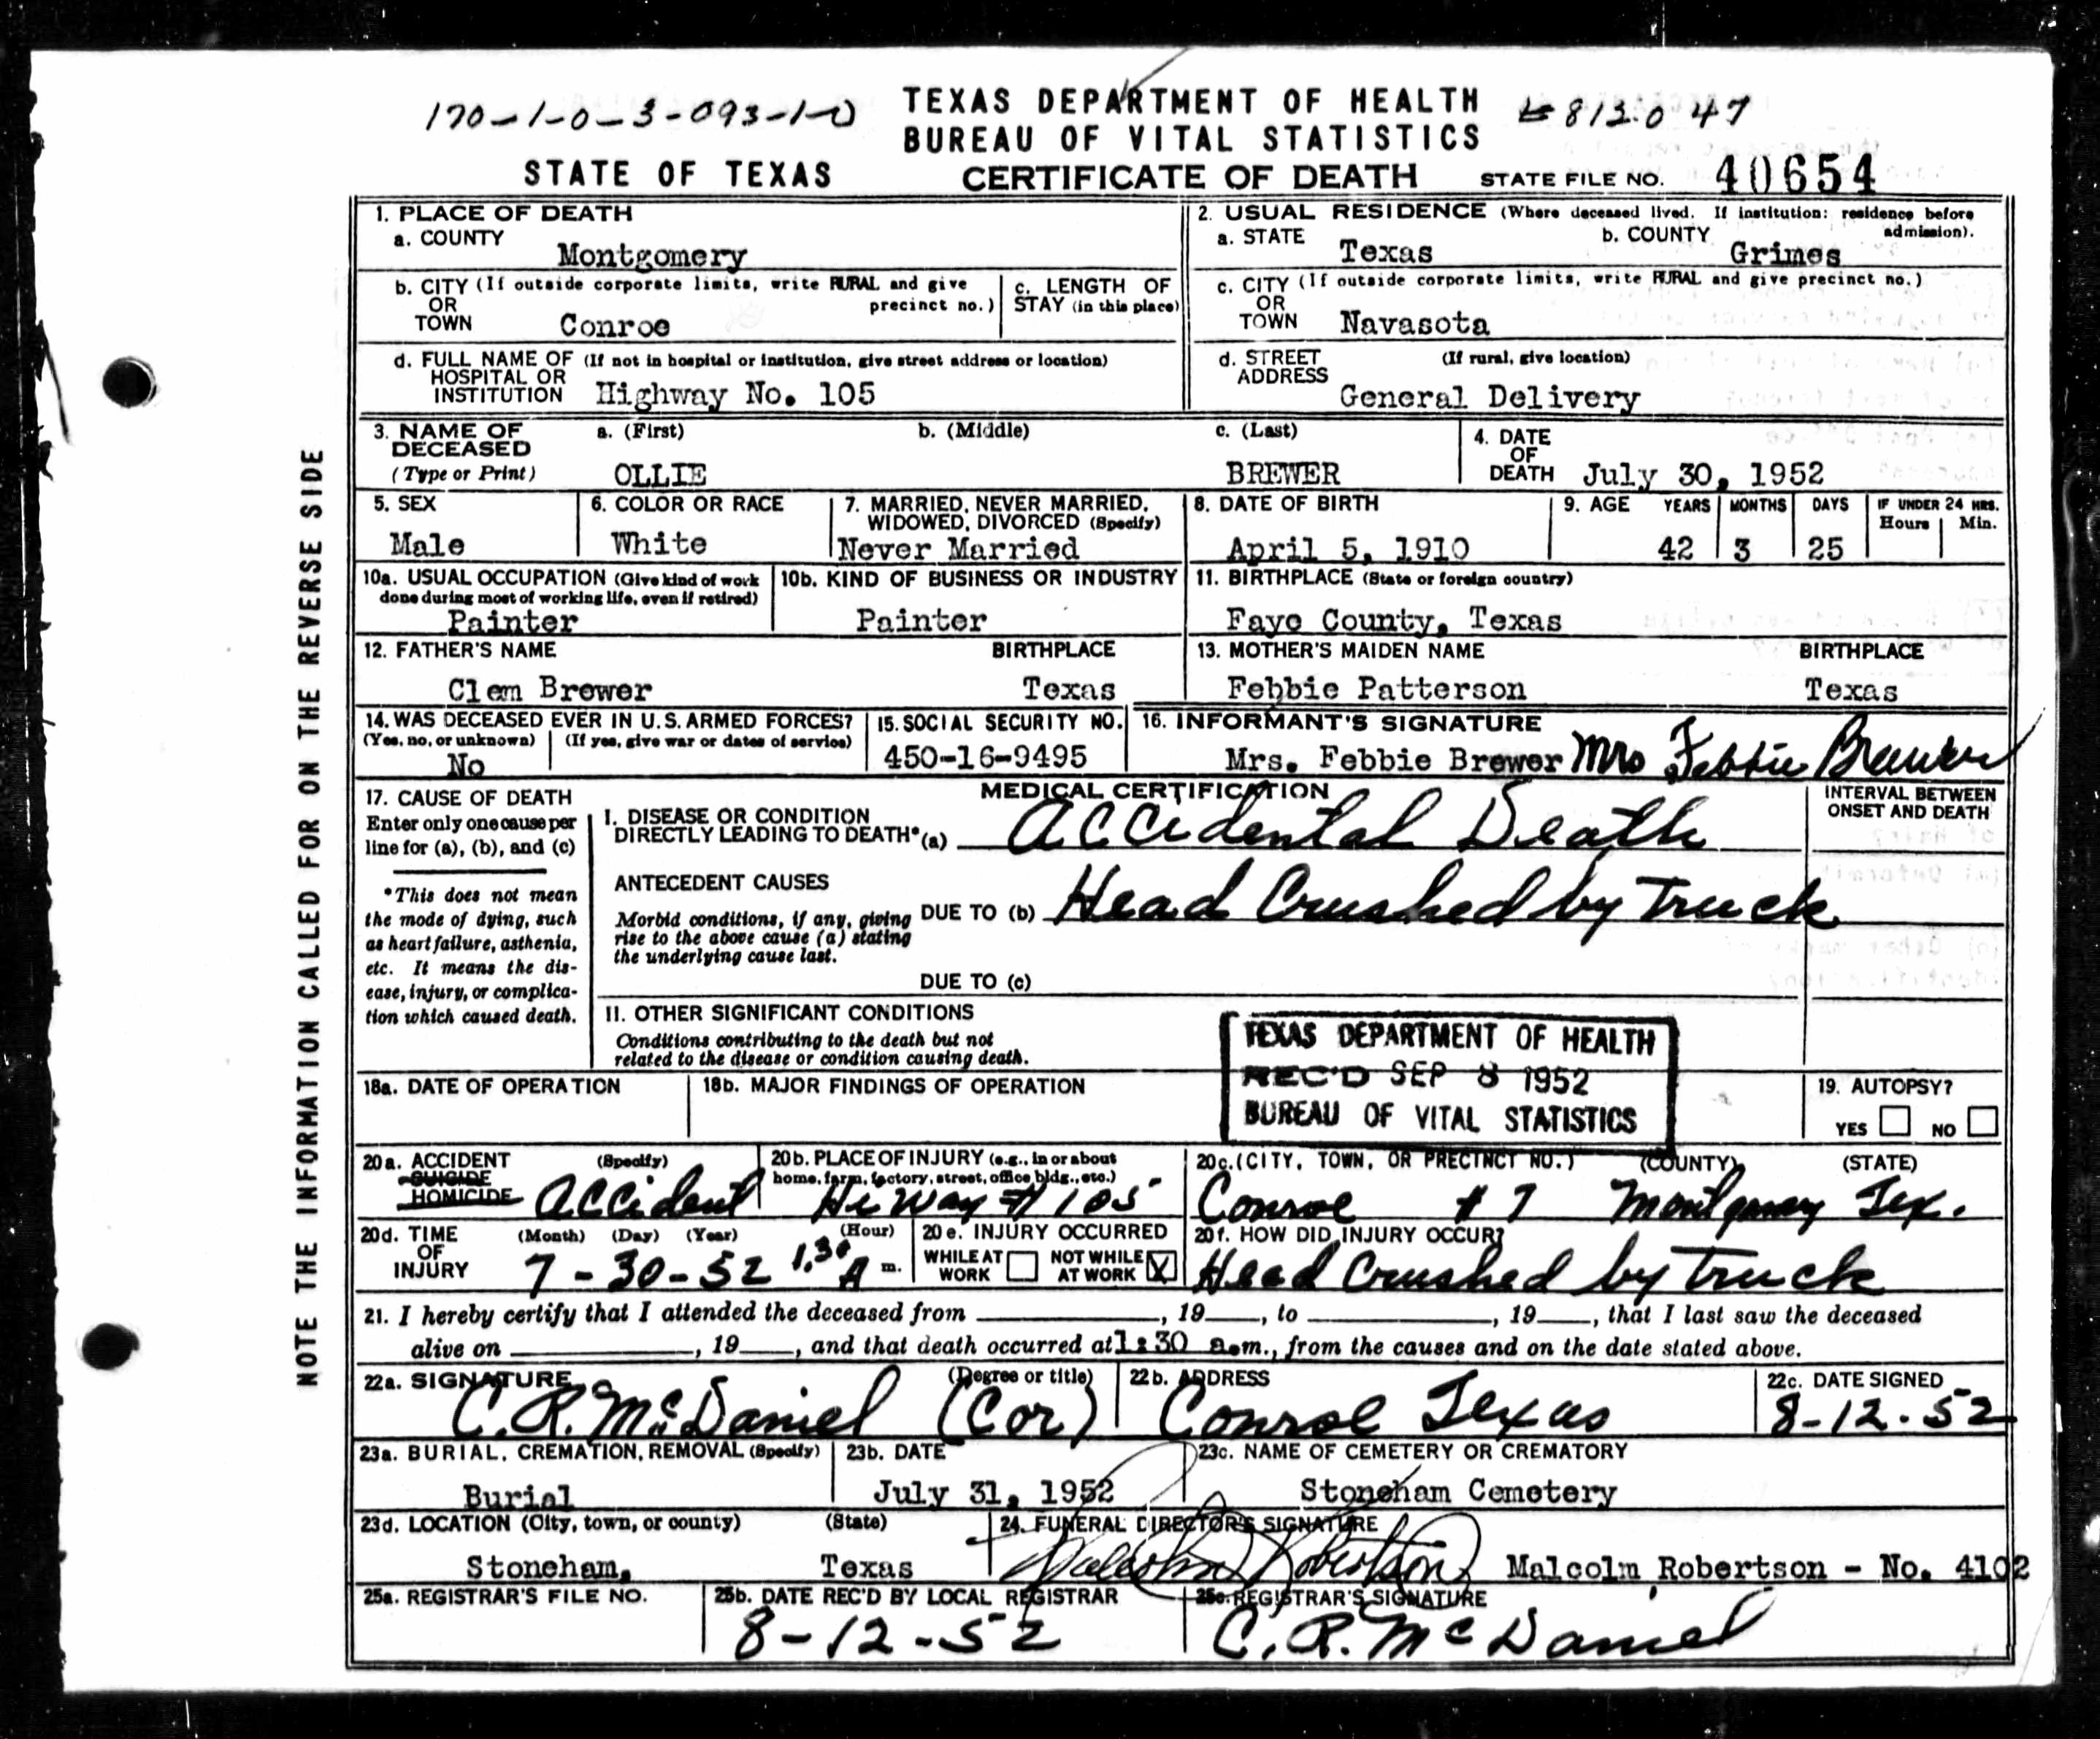 170-1-0-3-093-1-0
TEXAS DEPARTMENT OF HEALTH
BUREAU OF VITAL STATISTICS
8130 47
STATE OF TEXAS
CERTIFICATE OF DEATH
STATE FILE NO. 40654
NOTE THE INFORMATION CALLED FOR ON THE REVERSE SIDE
1. PLACE OF DEATH
a. COUNTY Montgomery
2. USUAL RESIDENCE (Where deceased lived. If institution: residence before admission).
a. STATE Texas b. COUNTY Grimes
b. CITY (If outside corporate limits, write RURAL and give precinct no.)
OR
TOWN Conroe
c. LENGTH OF
STAY (in this place)
c. CITY (If outside corporate limits, write RURAL and give precinct no.)
OR
TOWN Navasota
d. FULL NAME OF (If not in hospital or institution, give street address or location)
HOSPITAL OR
INSTITUTION Highway No. 105
d. STREET (If rural, give location)
ADDRESS General Delivery
3. NAME OF DECEASED (Type or Print)
a. (First) OLLIE
b. (Middle)
c. (Last) BREWER
4. DATE OF DEATH July 30, 1952
5. SEX Male
6. COLOR OR RACE White
7. MARRIED, NEVER MARRIED, WIDOWED, DIVORCED (Specify)
Never Married
8. DATE OF BIRTH April 5, 1910
9. AGE YEARS 42 MONTHS 3 DAYS 25
IF UNDER 24 HRS. Hours Min.
10a. USUAL OCCUPATION (Give kind of work
done during most of working life, even if retired)
Painter
10b. KIND OF BUSINESS OR INDUSTRY
Painter
11. BIRTHPLACE (State or foreign country)
Faye County, Texas
12. FATHER'S NAME BIRTHPLACE
Clem Brewer Texas
13. MOTHER'S MAIDEN NAME BIRTHPLACE
Febbie Patterson Texas
14. WAS DECEASED EVER IN U.S. ARMED FORCES?
(Yes, no, or unknown) (If yes, give war or dates of service)
No
15. SOCIAL SECURITY NO.
450-16-9495
16. INFORMANT'S SIGNATURE
Mrs. Febbie Brewer Mrs Febbie Brewer
MEDICAL CERTIFICATION
17. CAUSE OF DEATH
Enter only one cause per
line for (a), (b), and (c)
*This does not mean
the mode of dying, such
as heart failure, asthenia,
etc. It means the dis-
ease, injury, or complica-
tion which caused death.
I. DISEASE OR CONDITION
DIRECTLY LEADING TO DEATH* (a) Accidental Death
ANTECEDENT CAUSES
Morbid conditions, if any, giving
rise to the above cause (a) stating
the underlying cause last.
DUE TO (b) Head Crushed by Truck
DUE TO (c)
INTERVAL BETWEEN
ONSET AND DEATH
II. OTHER SIGNIFICANT CONDITIONS
Conditions contributing to the death but not
related to the disease or condition causing death.
TEXAS DEPARTMENT OF HEALTH
REC'D SEP 8 1952
BUREAU OF VITAL STATISTICS
18a. DATE OF OPERATION
18b. MAJOR FINDINGS OF OPERATION
19. AUTOPSY?
YES NO
20a. ACCIDENT (Specify)
SUICIDE
HOMICIDE Accident
20b. PLACE OF INJURY (e.g., in or about
home, farm, factory, street, office bldg., etc.)
Hi Way # 105
20c. (CITY, TOWN, OR PRECINCT NO.) (COUNTY) (STATE)
Conroe # 7 Montgomery Tex.
20d. TIME OF INJURY
(Month) (Day) (Year) (Hour)
7-30-52 1:30 A m.
20e. INJURY OCCURRED
WHILE AT WORK NOT WHILE AT WORK X
20f. HOW DID INJURY OCCUR?
Head Crushed by truck
21. I hereby certify that I attended the deceased from , 19 , to , 19 , that I last saw the deceased
alive on , 19 , and that death occurred at 1:30 a.m., from the causes and on the date stated above.
22a. SIGNATURE (Degree or title)
C. R. McDaniel (Cor)
22b. ADDRESS
Conroe Texas
22c. DATE SIGNED
8-12-52
23a. BURIAL, CREMATION, REMOVAL (Specify)
Burial
23b. DATE
July 31, 1952
23c. NAME OF CEMETERY OR CREMATORY
Stoneham Cemetery
23d. LOCATION (City, town, or county) (State)
Stoneham, Texas
24. FUNERAL DIRECTOR'S SIGNATURE
Malcolm Robertson Malcolm Robertson - No. 4102
25a. REGISTRAR'S FILE NO.
25b. DATE REC'D BY LOCAL REGISTRAR
8-12-52
25c. REGISTRAR'S SIGNATURE
C. R. McDaniel